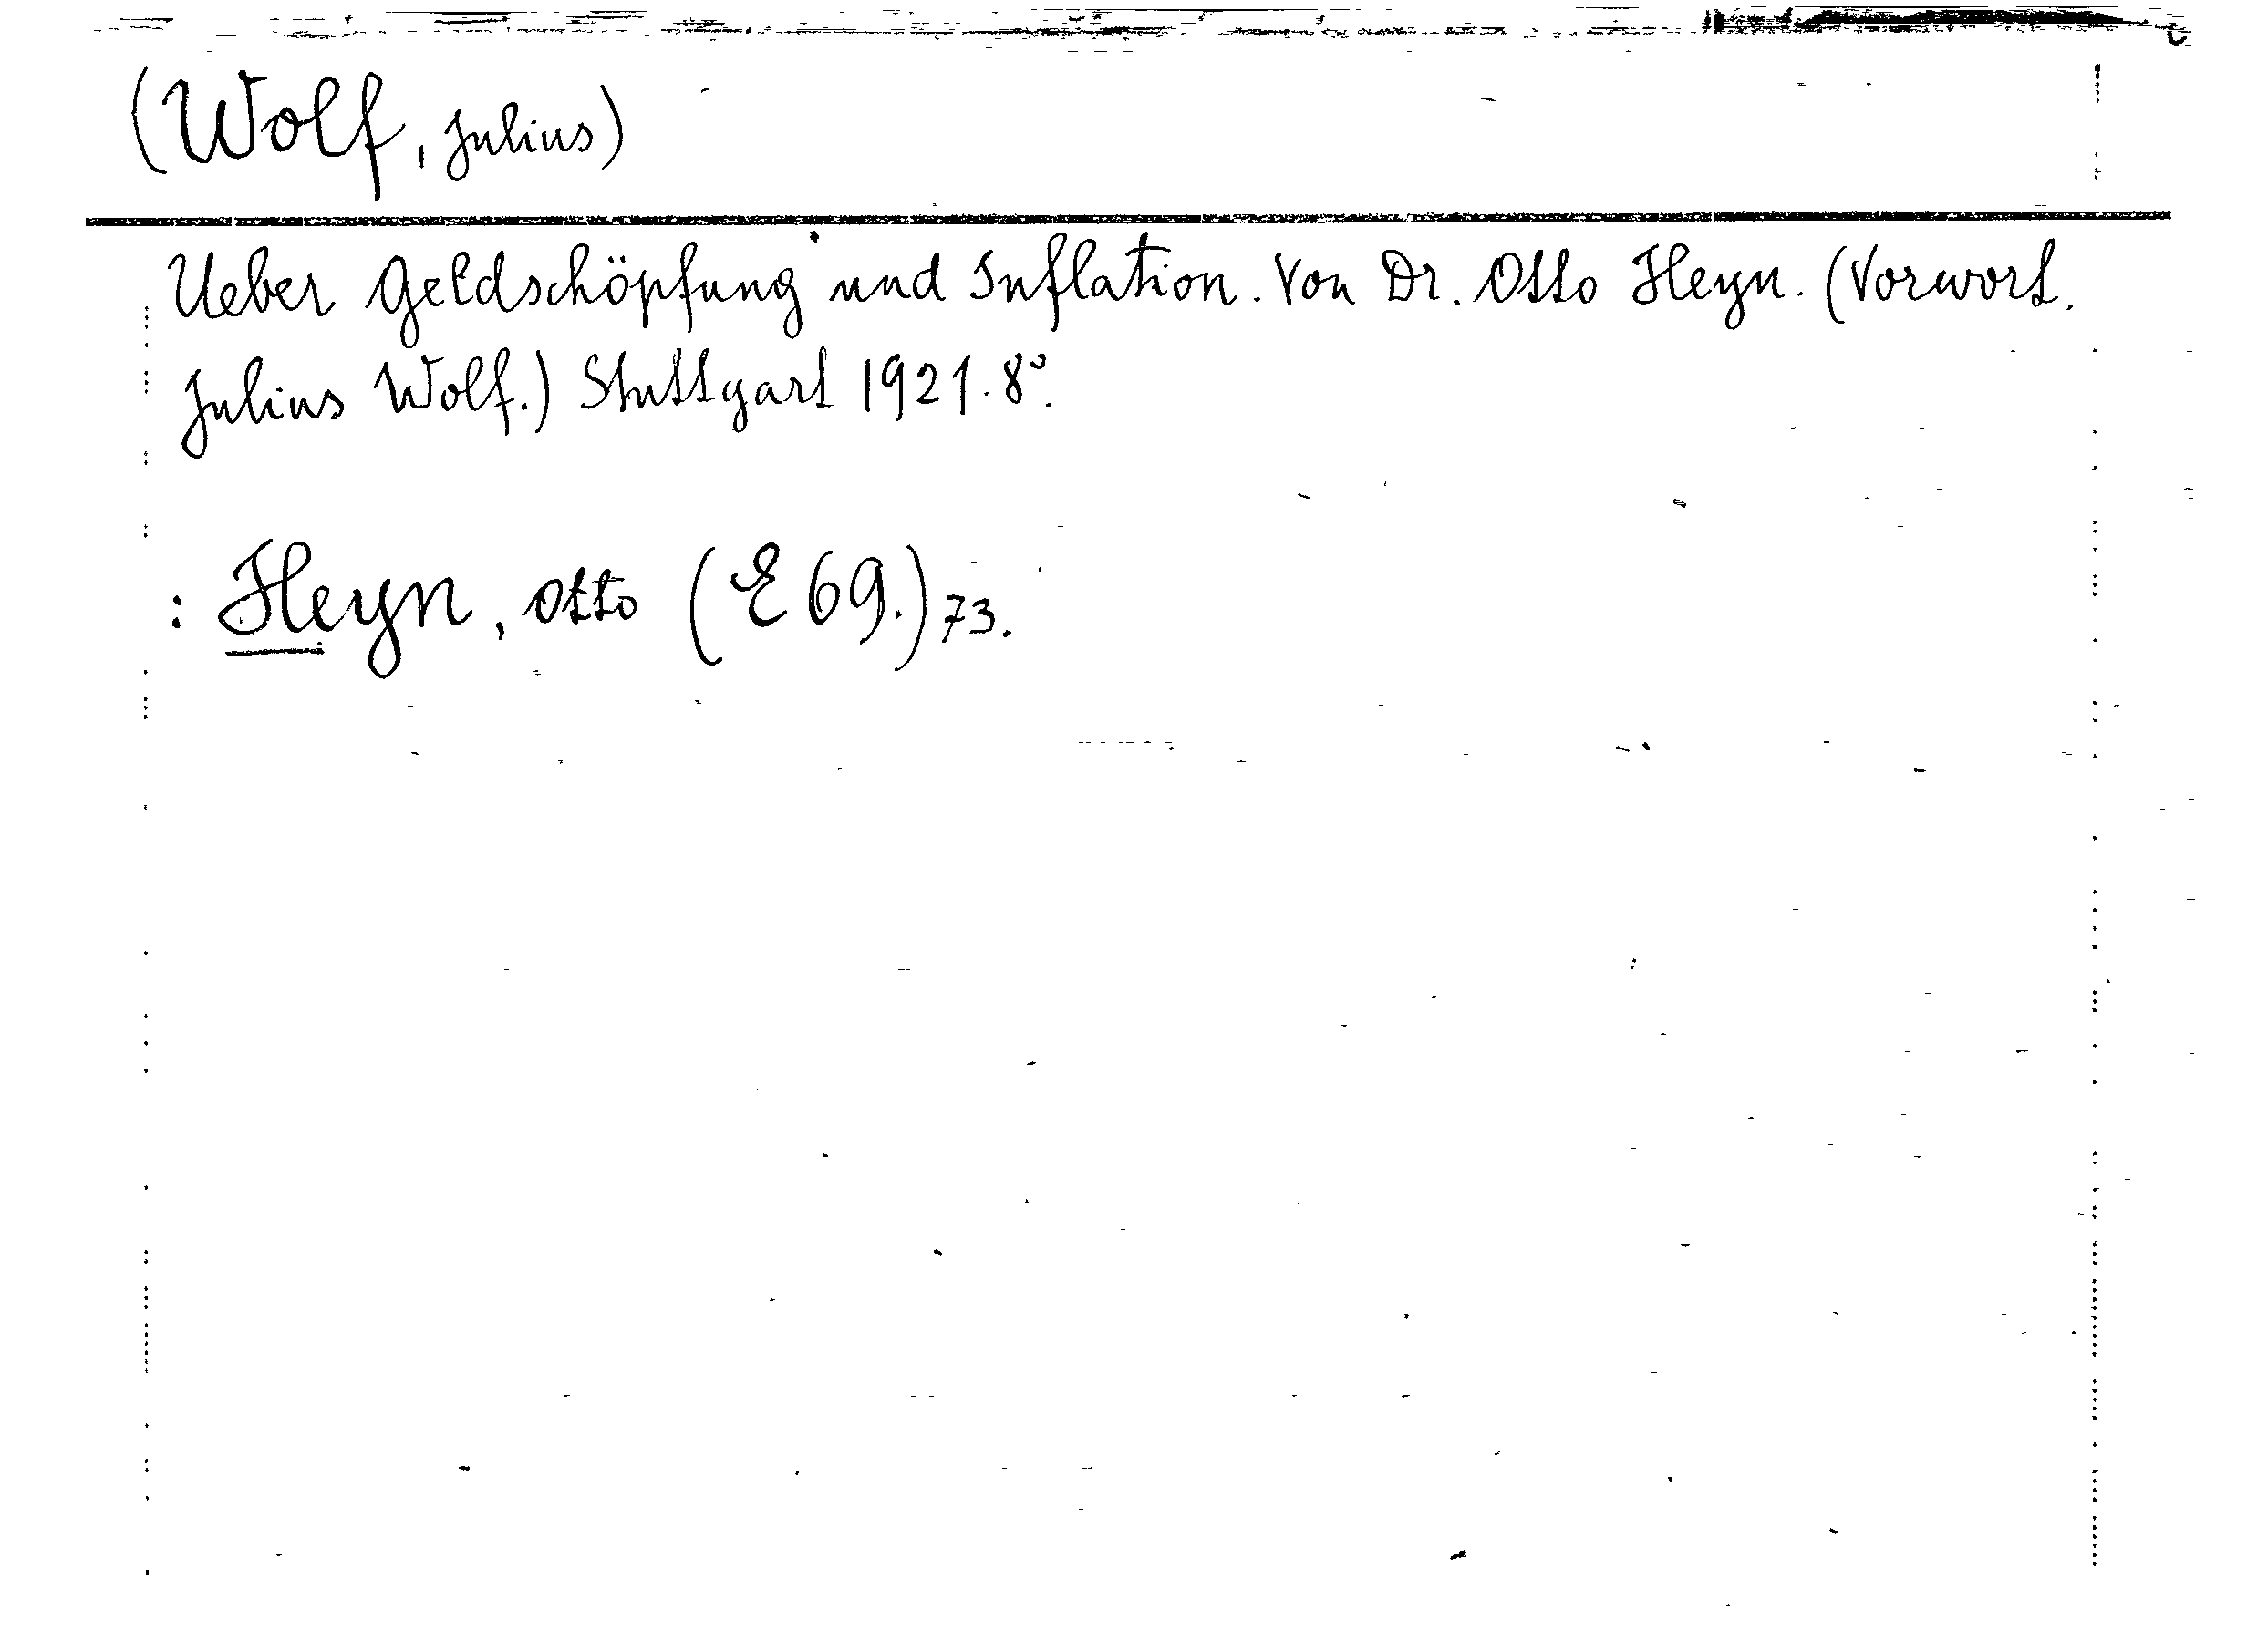 (Wolf, Julius)
Ueber Geldschöpfung und Inflation. Von Dr. Otto Heyn. (Vorwort.
Julius Wolf.) Stuttgart 1921. 8°.
: Heyn, Otto (E 69.) 73.